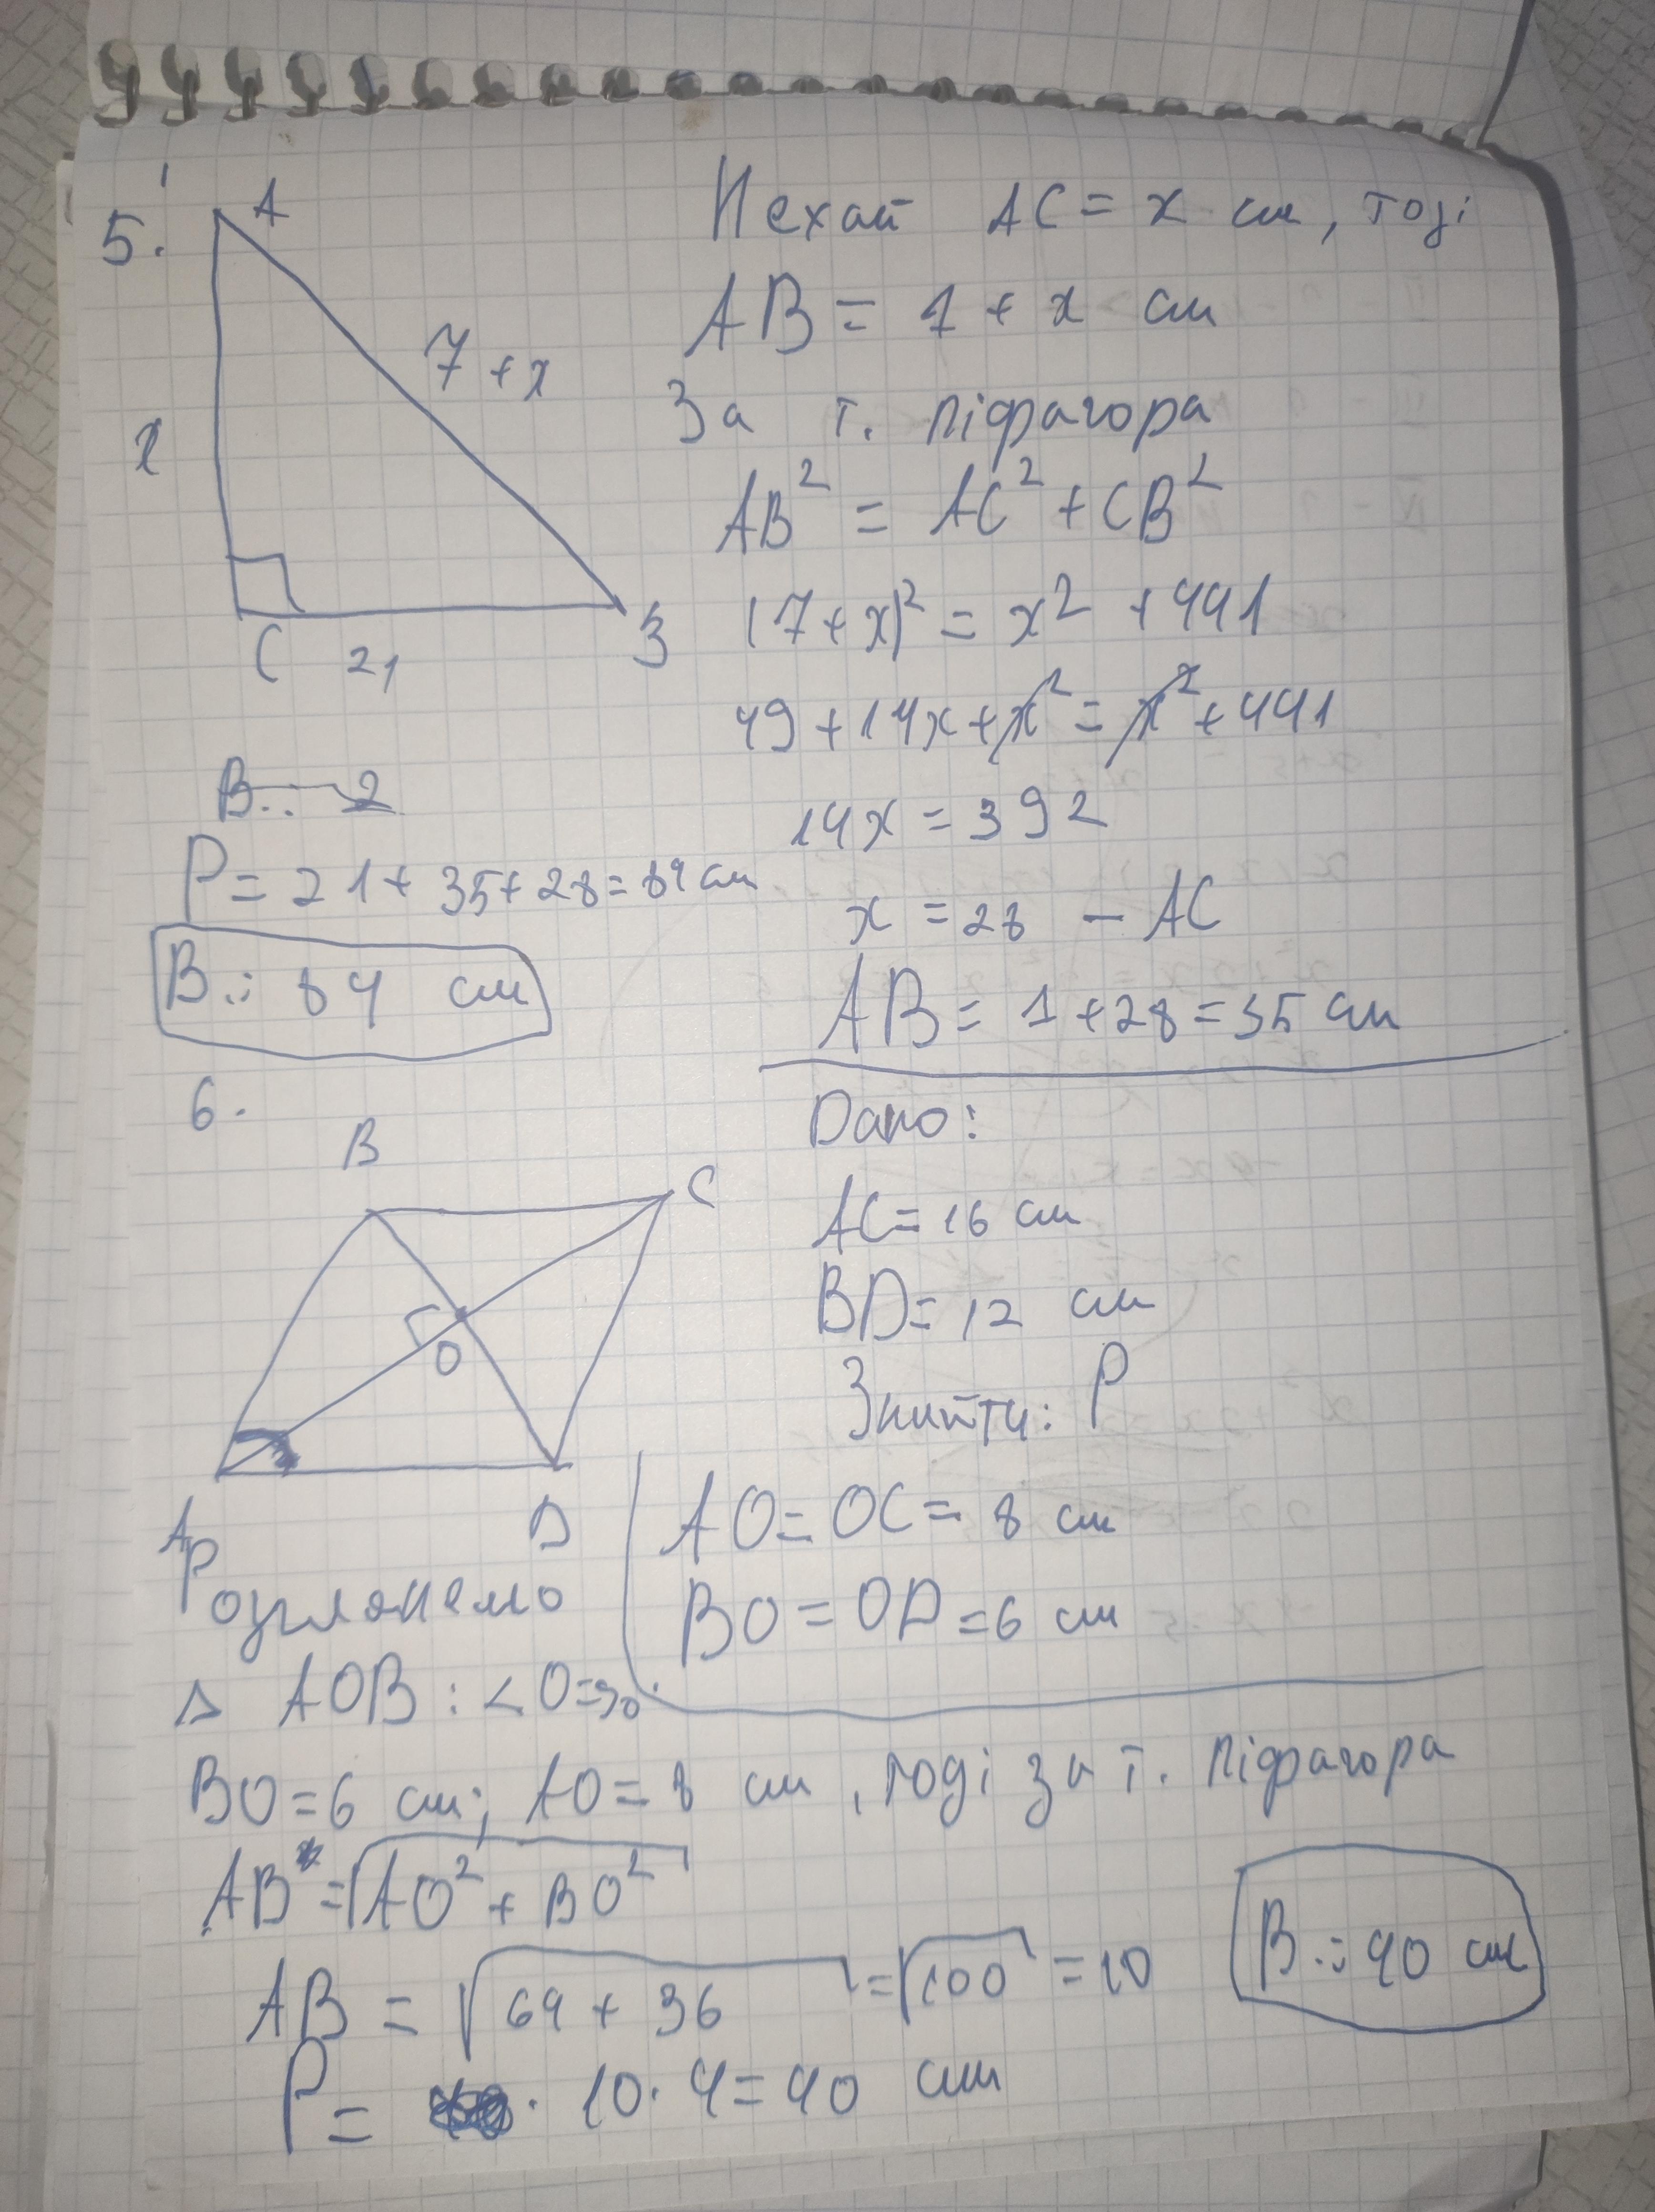 5.
A
7 + x
x
C 21 B
Нехай AC = x см, тоді
AB = 7 + x см
За т. піфагора
AB² = AC² + CB²
(7 + x)² = x² + 441
49 + 14x + x² = x² + 441
14x = 392
x = 28 – AC
AB = 7 + 28 = 35 см
В.: 2
P = 21 + 35 + 28 = 84 см
В.: 84 см
6.
B
C
O
A D
Дано:
AC = 16 см
BD = 12 см
Знайти: P
AO = OC = 8 см
BO = OD = 6 см
Розглянемо
△ AOB : ∠O = 90°
BO = 6 см; AO = 8 см, тоді за т. піфагора
AB = √AO² + BO²
AB = √64 + 36 = √100 = 10
P = · 10 · 4 = 40 см
В.: 40 см